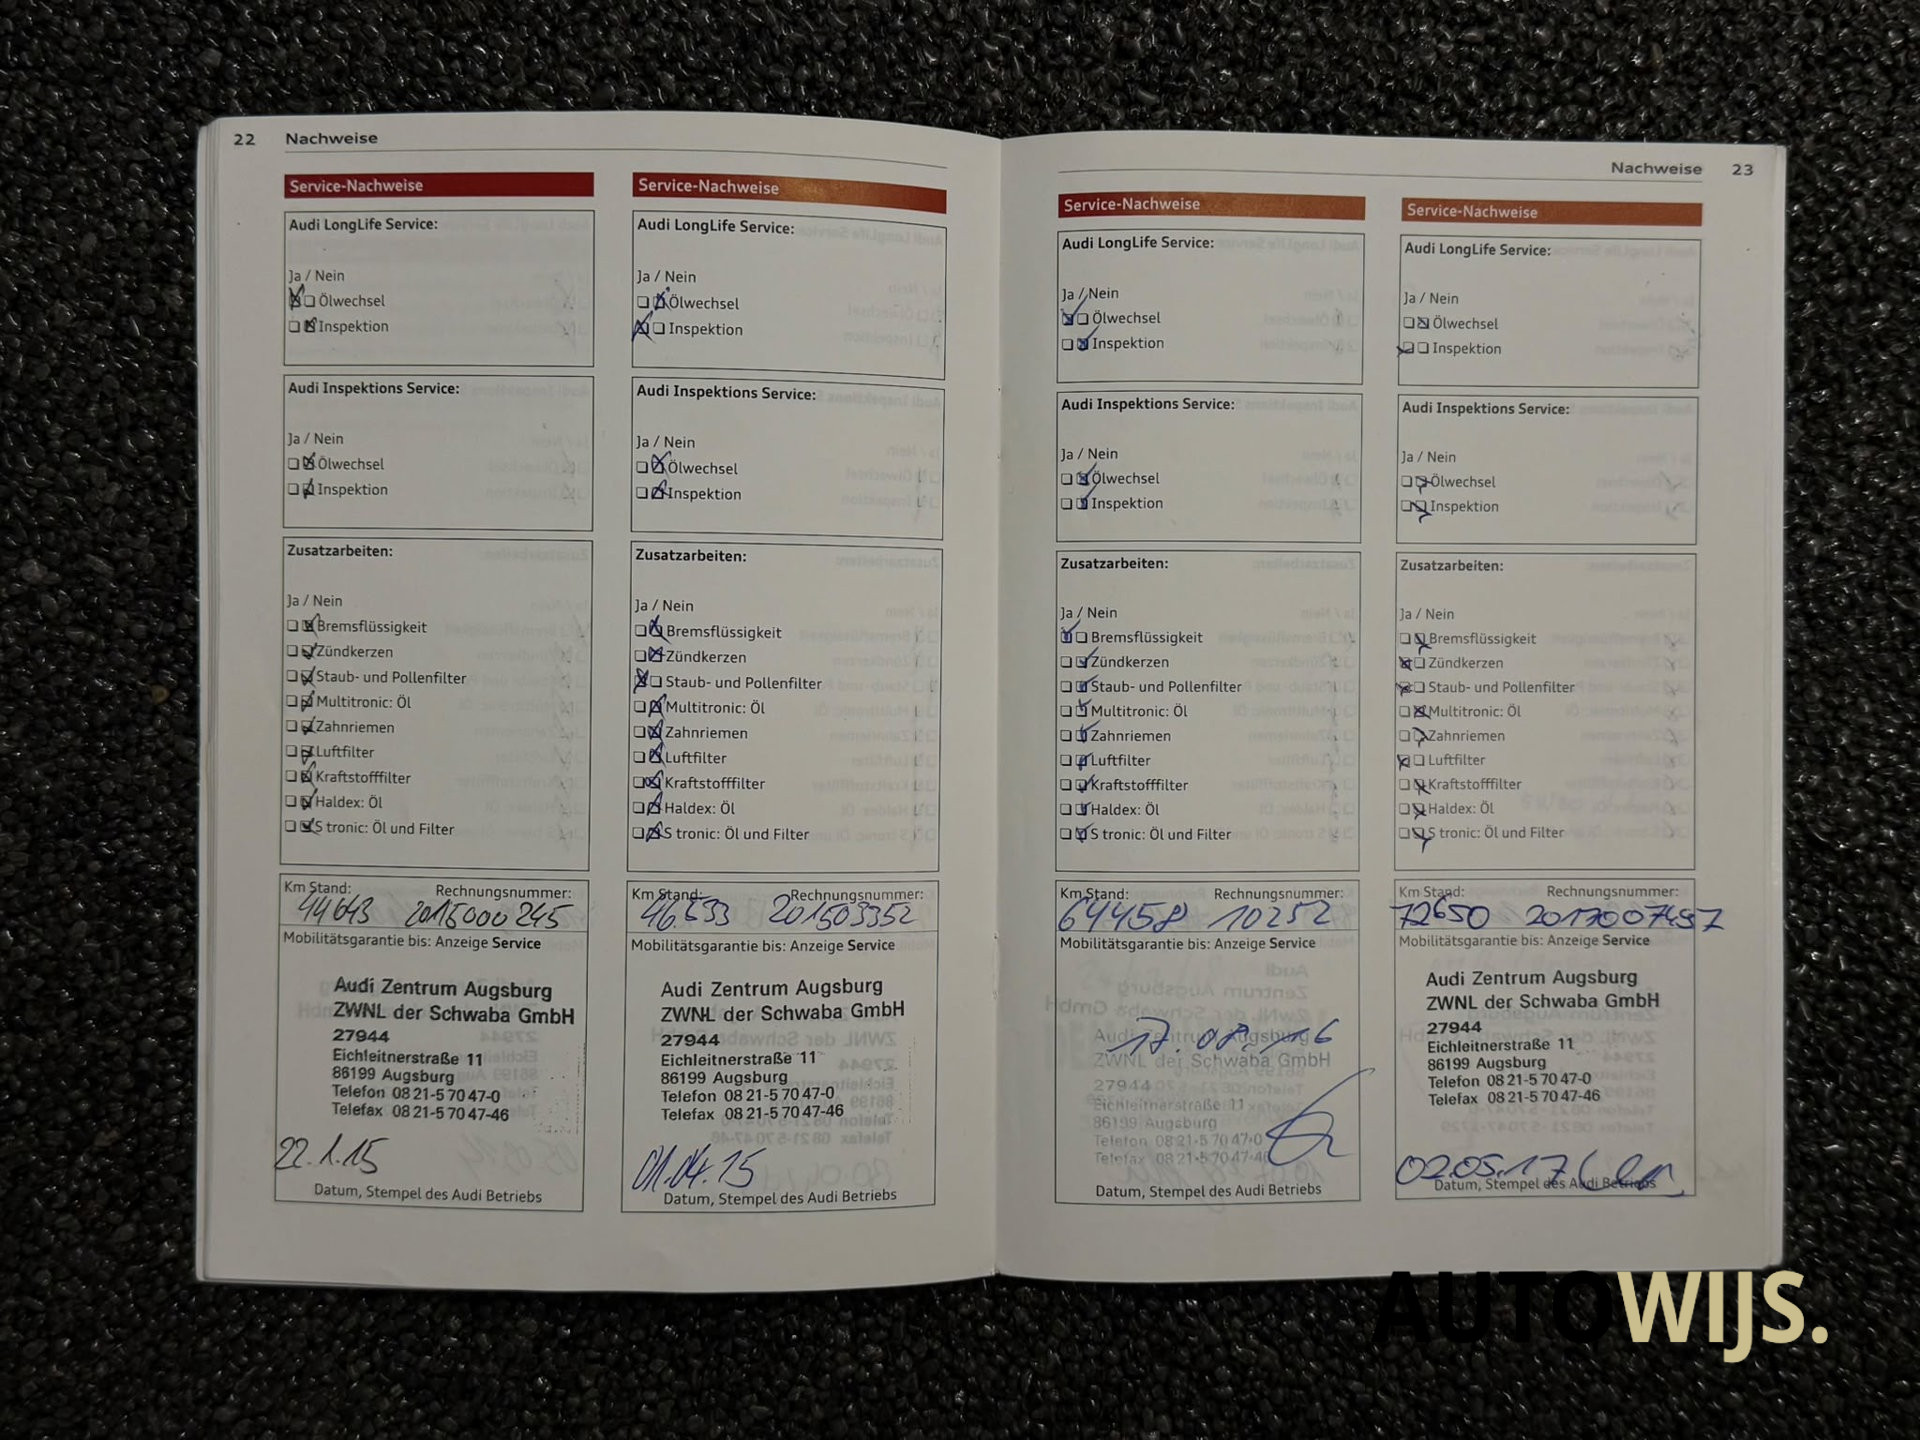 22 Nachweise
Service-Nachweise
Audi LongLife Service:
Ja / Nein
Ölwechsel
Inspektion
Audi Inspektions Service:
Ja / Nein
Ölwechsel
Inspektion
Zusatzarbeiten:
Ja / Nein
Bremsflüssigkeit
Zündkerzen
Staub- und Pollenfilter
Multitronic: Öl
Zahnriemen
Luftfilter
Kraftstofffilter
Haldex: Öl
S tronic: Öl und Filter
Km Stand: Rechnungsnummer:
44643 2015000245
Mobilitätsgarantie bis: Anzeige Service
Audi Zentrum Augsburg
ZWNL der Schwaba GmbH
27944
Eichleitnerstraße 11
86199 Augsburg
Telefon 08 21-5 70 47-0
Telefax 08 21-5 70 47-46
22.1.15
Datum, Stempel des Audi Betriebs
Service-Nachweise
Audi LongLife Service:
Ja / Nein
Ölwechsel
Inspektion
Audi Inspektions Service:
Ja / Nein
Ölwechsel
Inspektion
Zusatzarbeiten:
Ja / Nein
Bremsflüssigkeit
Zündkerzen
Staub- und Pollenfilter
Multitronic: Öl
Zahnriemen
Luftfilter
Kraftstofffilter
Haldex: Öl
S tronic: Öl und Filter
Km Stand: Rechnungsnummer:
46.533 201503352
Mobilitätsgarantie bis: Anzeige Service
Audi Zentrum Augsburg
ZWNL der Schwaba GmbH
27944
Eichleitnerstraße 11
86199 Augsburg
Telefon 08 21-5 70 47-0
Telefax 08 21-5 70 47-46
01.04.15
Datum, Stempel des Audi Betriebs
Nachweise 23
Service-Nachweise
Audi LongLife Service:
Ja / Nein
Ölwechsel
Inspektion
Audi Inspektions Service:
Ja / Nein
Ölwechsel
Inspektion
Zusatzarbeiten:
Ja / Nein
Bremsflüssigkeit
Zündkerzen
Staub- und Pollenfilter
Multitronic: Öl
Zahnriemen
Luftfilter
Kraftstofffilter
Haldex: Öl
S tronic: Öl und Filter
Km Stand: Rechnungsnummer:
64458 10252
Mobilitätsgarantie bis: Anzeige Service
Audi Zentrum Augsburg
17.08.16
ZWNL der Schwaba GmbH
27944
Eichleitnerstraße 11
86199 Augsburg
Telefon 08 21-5 70 47-0
Telefax 08 21-5 70 47-46
Datum, Stempel des Audi Betriebs
Service-Nachweise
Audi LongLife Service:
Ja / Nein
Ölwechsel
Inspektion
Audi Inspektions Service:
Ja / Nein
Ölwechsel
Inspektion
Zusatzarbeiten:
Ja / Nein
Bremsflüssigkeit
Zündkerzen
Staub- und Pollenfilter
Multitronic: Öl
Zahnriemen
Luftfilter
Kraftstofffilter
Haldex: Öl
S tronic: Öl und Filter
Km Stand: Rechnungsnummer:
72650 2017007457
Mobilitätsgarantie bis: Anzeige Service
Audi Zentrum Augsburg
ZWNL der Schwaba GmbH
27944
Eichleitnerstraße 11
86199 Augsburg
Telefon 08 21-5 70 47-0
Telefax 08 21-5 70 47-46
02.05.17
Datum, Stempel des Audi Betriebs
AUTOWIJS.